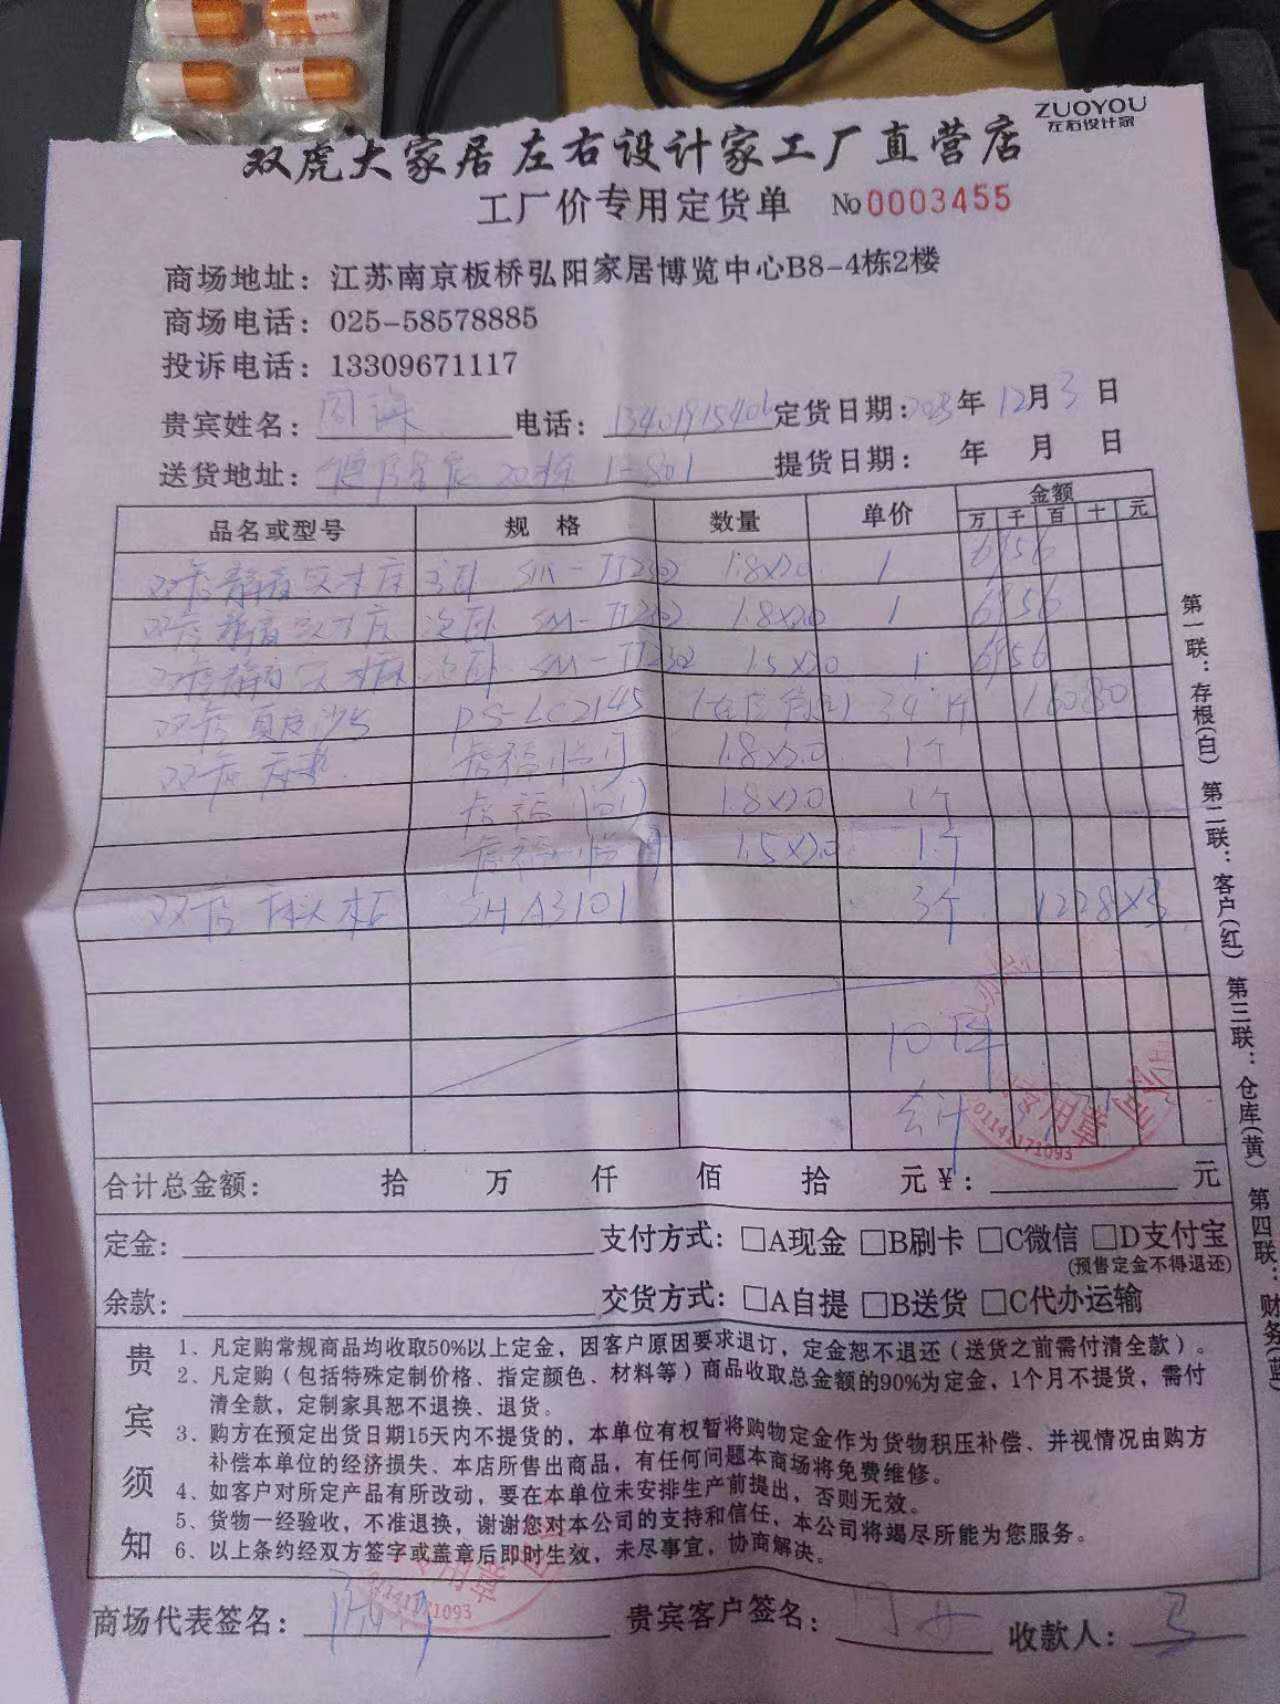 ZUOYOU
左右设计家
双虎大家居 左右设计家工厂直营店
工厂价专用定货单 No 0003455
商场地址：江苏南京板桥弘阳家居博览中心B8-4栋2楼
商场电话：025-58578885
投诉电话：13309671117
贵宾姓名： 电话： 定货日期：2023年12月3日
送货地址： 20栋 1-801 提货日期： 年 月 日
品名或型号 规 格 数量 单价 金额
万 千 百 十 元
双虎静音实木床 主卧 SM-TT202 1.8×2.0 1 6956
双虎静音实木床 次卧 SM-TT202 1.8×2.0 1 6956
双虎静音实木床 次卧 SM-TT202 1.5×2.0 1 6956
双虎真皮沙发 PSLC2145 16080
双虎床垫 1.8×2.0 1个
1.8×2.0 1个
1.5×2.0 1个
双虎床头柜 SHA3101 3个 1228×3
10件
合计
用章
01141171093
合计总金额： 拾 万 仟 佰 拾 元¥： 元
定金： 支付方式：□A现金 □B刷卡 □C微信 □D支付宝
(预售定金不得退还)
余款： 交货方式：□A自提 □B送货 □C代办运输
贵宾须知
1、凡定购常规商品均收取50%以上定金，因客户原因要求退订，定金恕不退还（送货之前需付清全款）。
2、凡定购（包括特殊定制价格、指定颜色、材料等）商品收取总金额的90%为定金，1个月不提货，需付
清全款，定制家具恕不退换、退货。
3、购方在预定出货日期15天内不提货的，本单位有权暂将购物定金作为货物积压补偿、并视情况由购方
补偿本单位的经济损失、本店所售出商品，有任何问题本商场将免费维修。
4、如客户对所定产品有所改动，要在本单位未安排生产前提出，否则无效。
5、货物一经验收，不准退换，谢谢您对本公司的支持和信任，本公司将竭尽所能为您服务。
6、以上条约经双方签字或盖章后即时生效，未尽事宜，协商解决。
商场代表签名： 贵宾客户签名： 收款人：
第一联：存根(白) 第二联：客户(红) 第三联：仓库(黄) 第四联：财务(蓝)